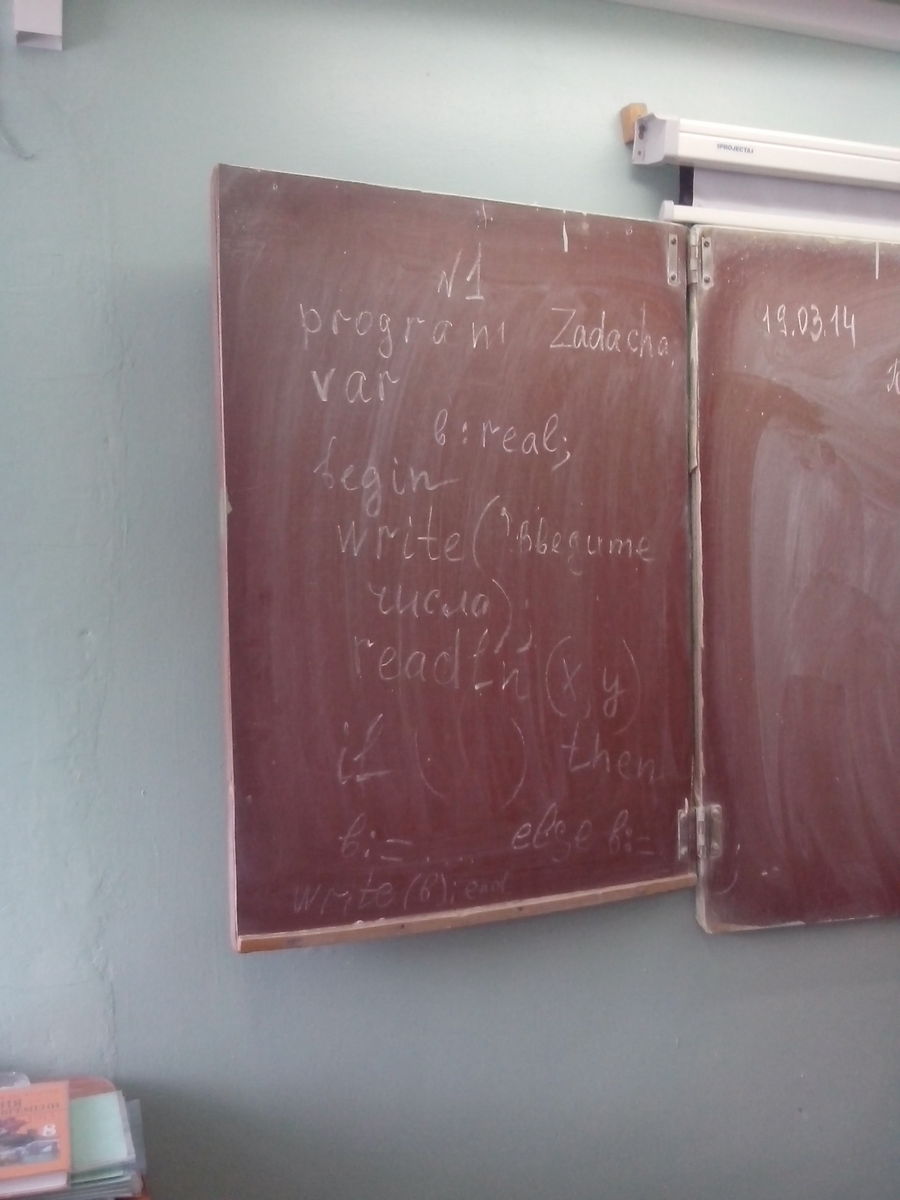 №1
program Zadacha;
var
b:real;
begin
write('введите
числа);
readln(x,y)
if ( ) then
b:=.... else b:=
write(b);end
19.03.14
PROJECTA
8